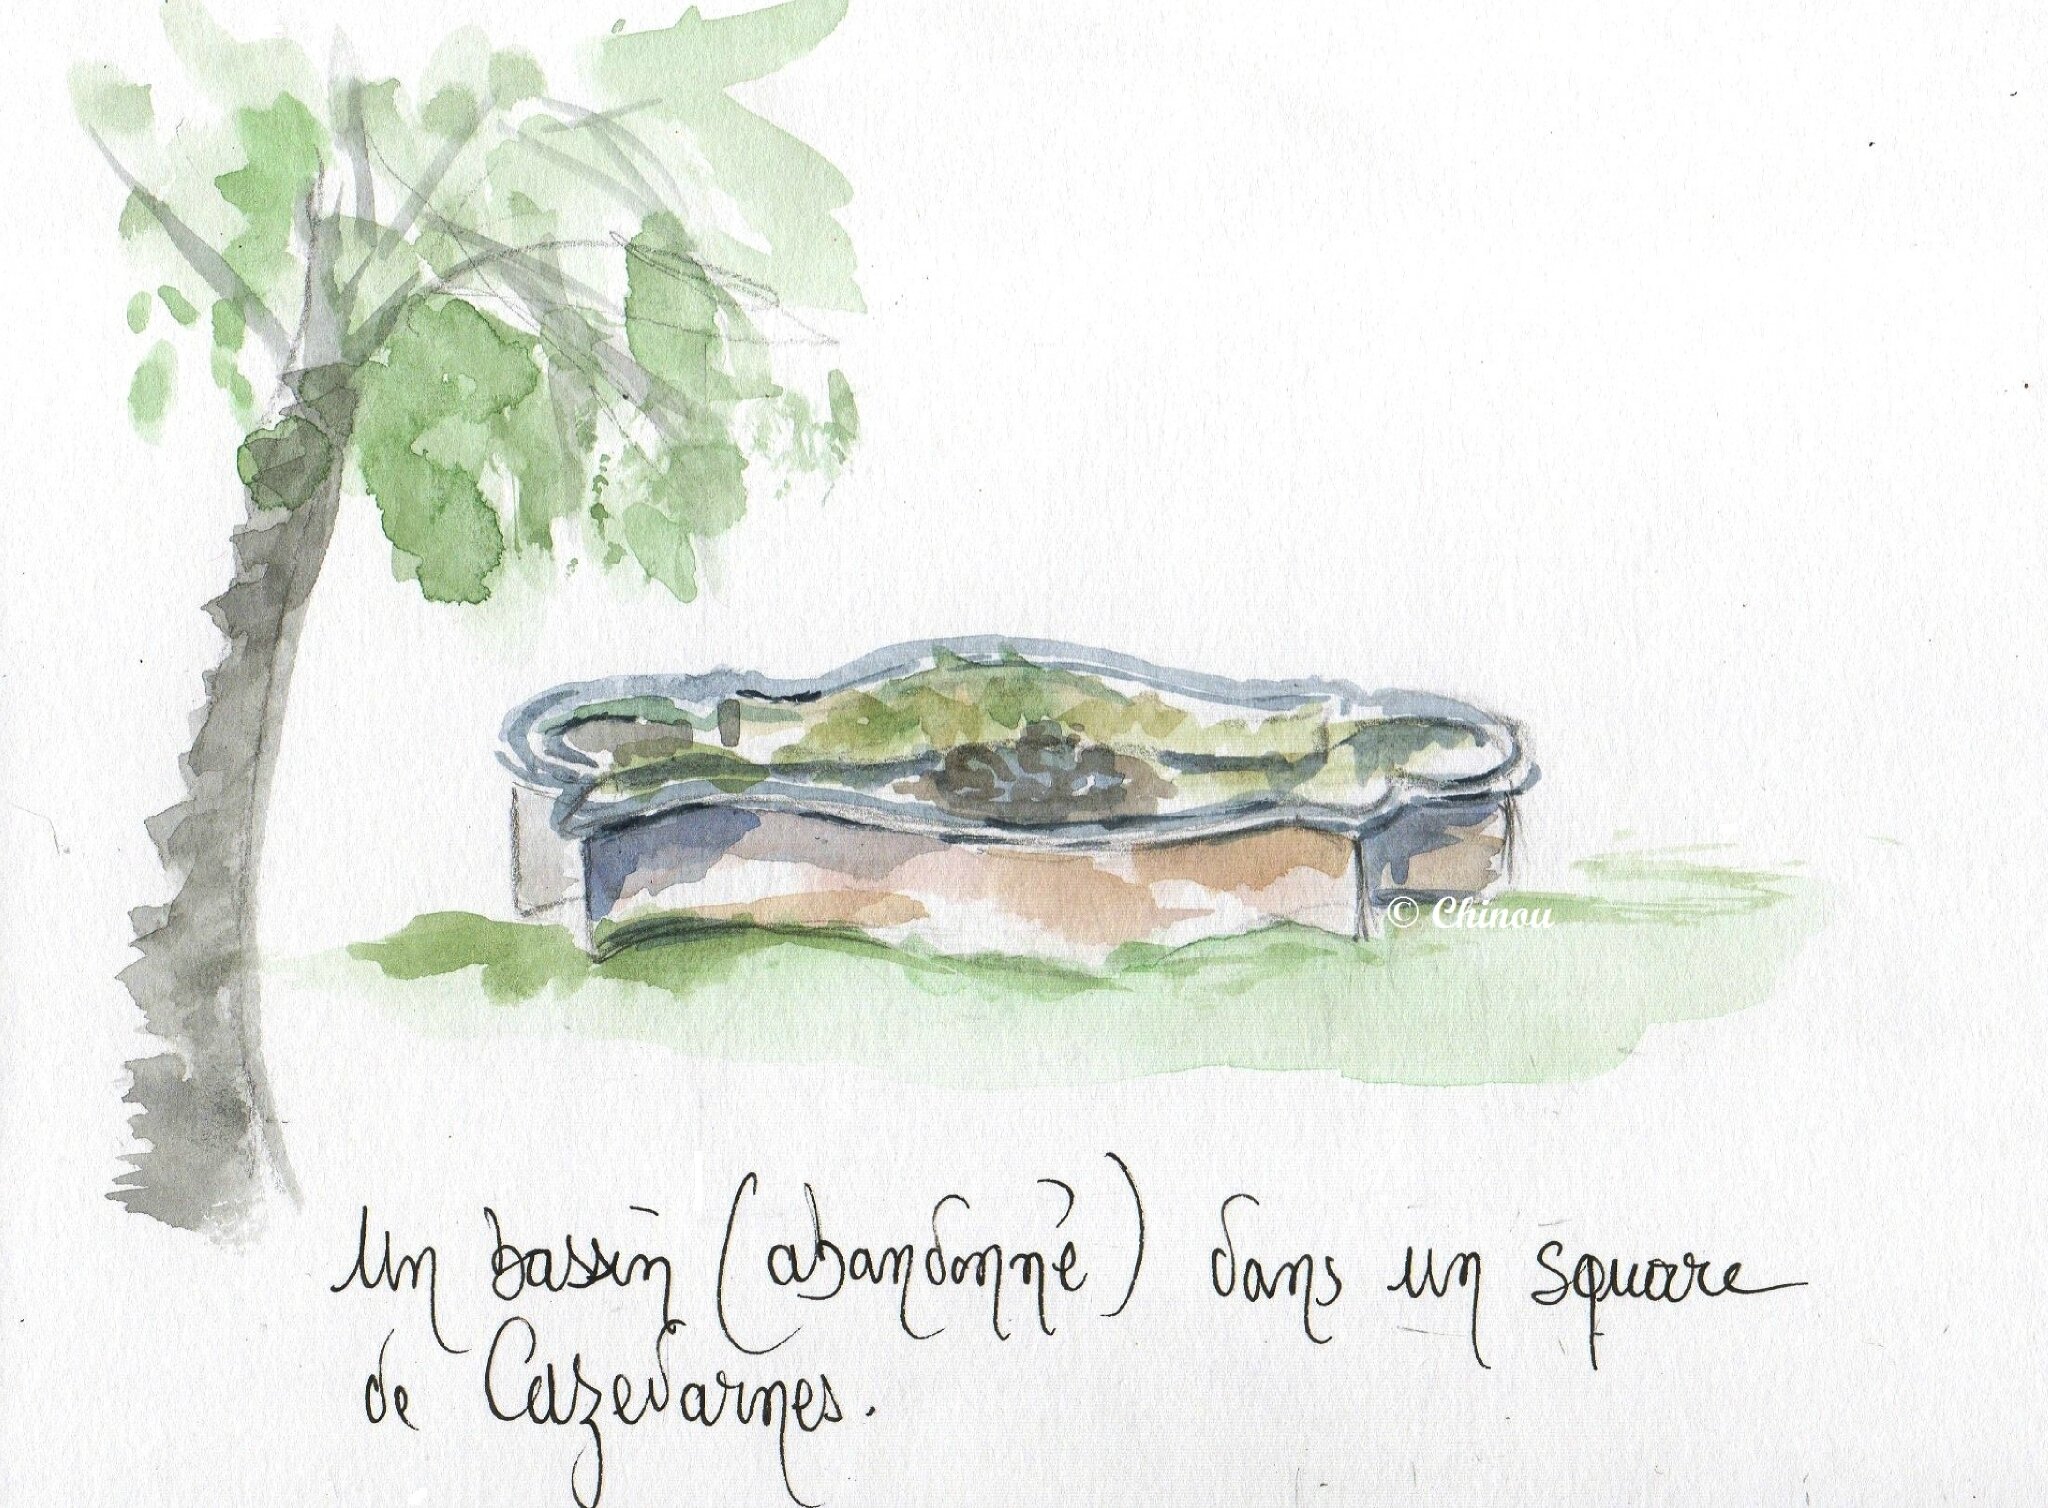 © Chinou
Un bassin (abandonné) dans un square
de Cazedarnes.